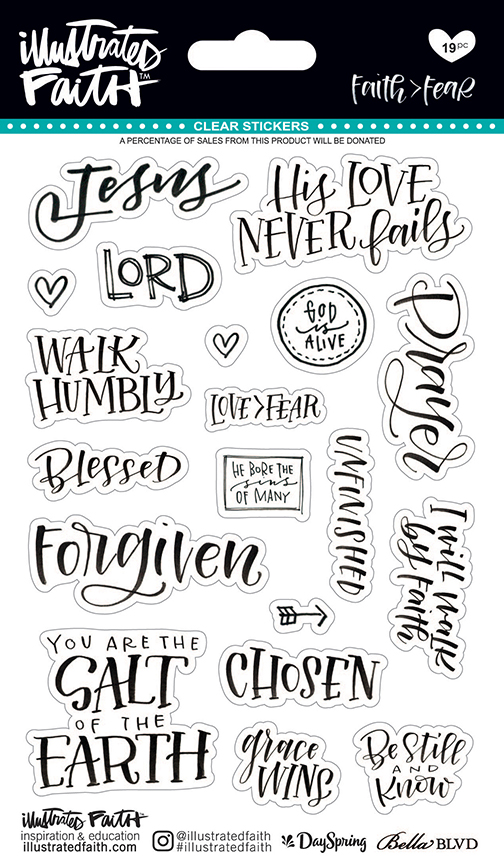 illustrated
FAITH™
19pc
FAITH>FEAR
CLEAR STICKERS
A PERCENTAGE OF SALES FROM THIS PRODUCT WILL BE DONATED
Jesus
His LOVE
NEVER fails
LORD
GOD
is
ALIVE
Prayer
WALK
HUMBLY
LOVE>FEAR
Blessed
HE BORE THE
sins
OF MANY
UNFINISHED
I will walk
by faith
Forgiven
YOU ARE THE
SALT
OF THE
EARTH
CHOSEN
grace
WINS
Be Still
AND
Know
illustrated FAITH
inspiration & education
illustratedfaith.com
@illustratedfaith
@illustratedfaith
DaySpring
Bella BLVD